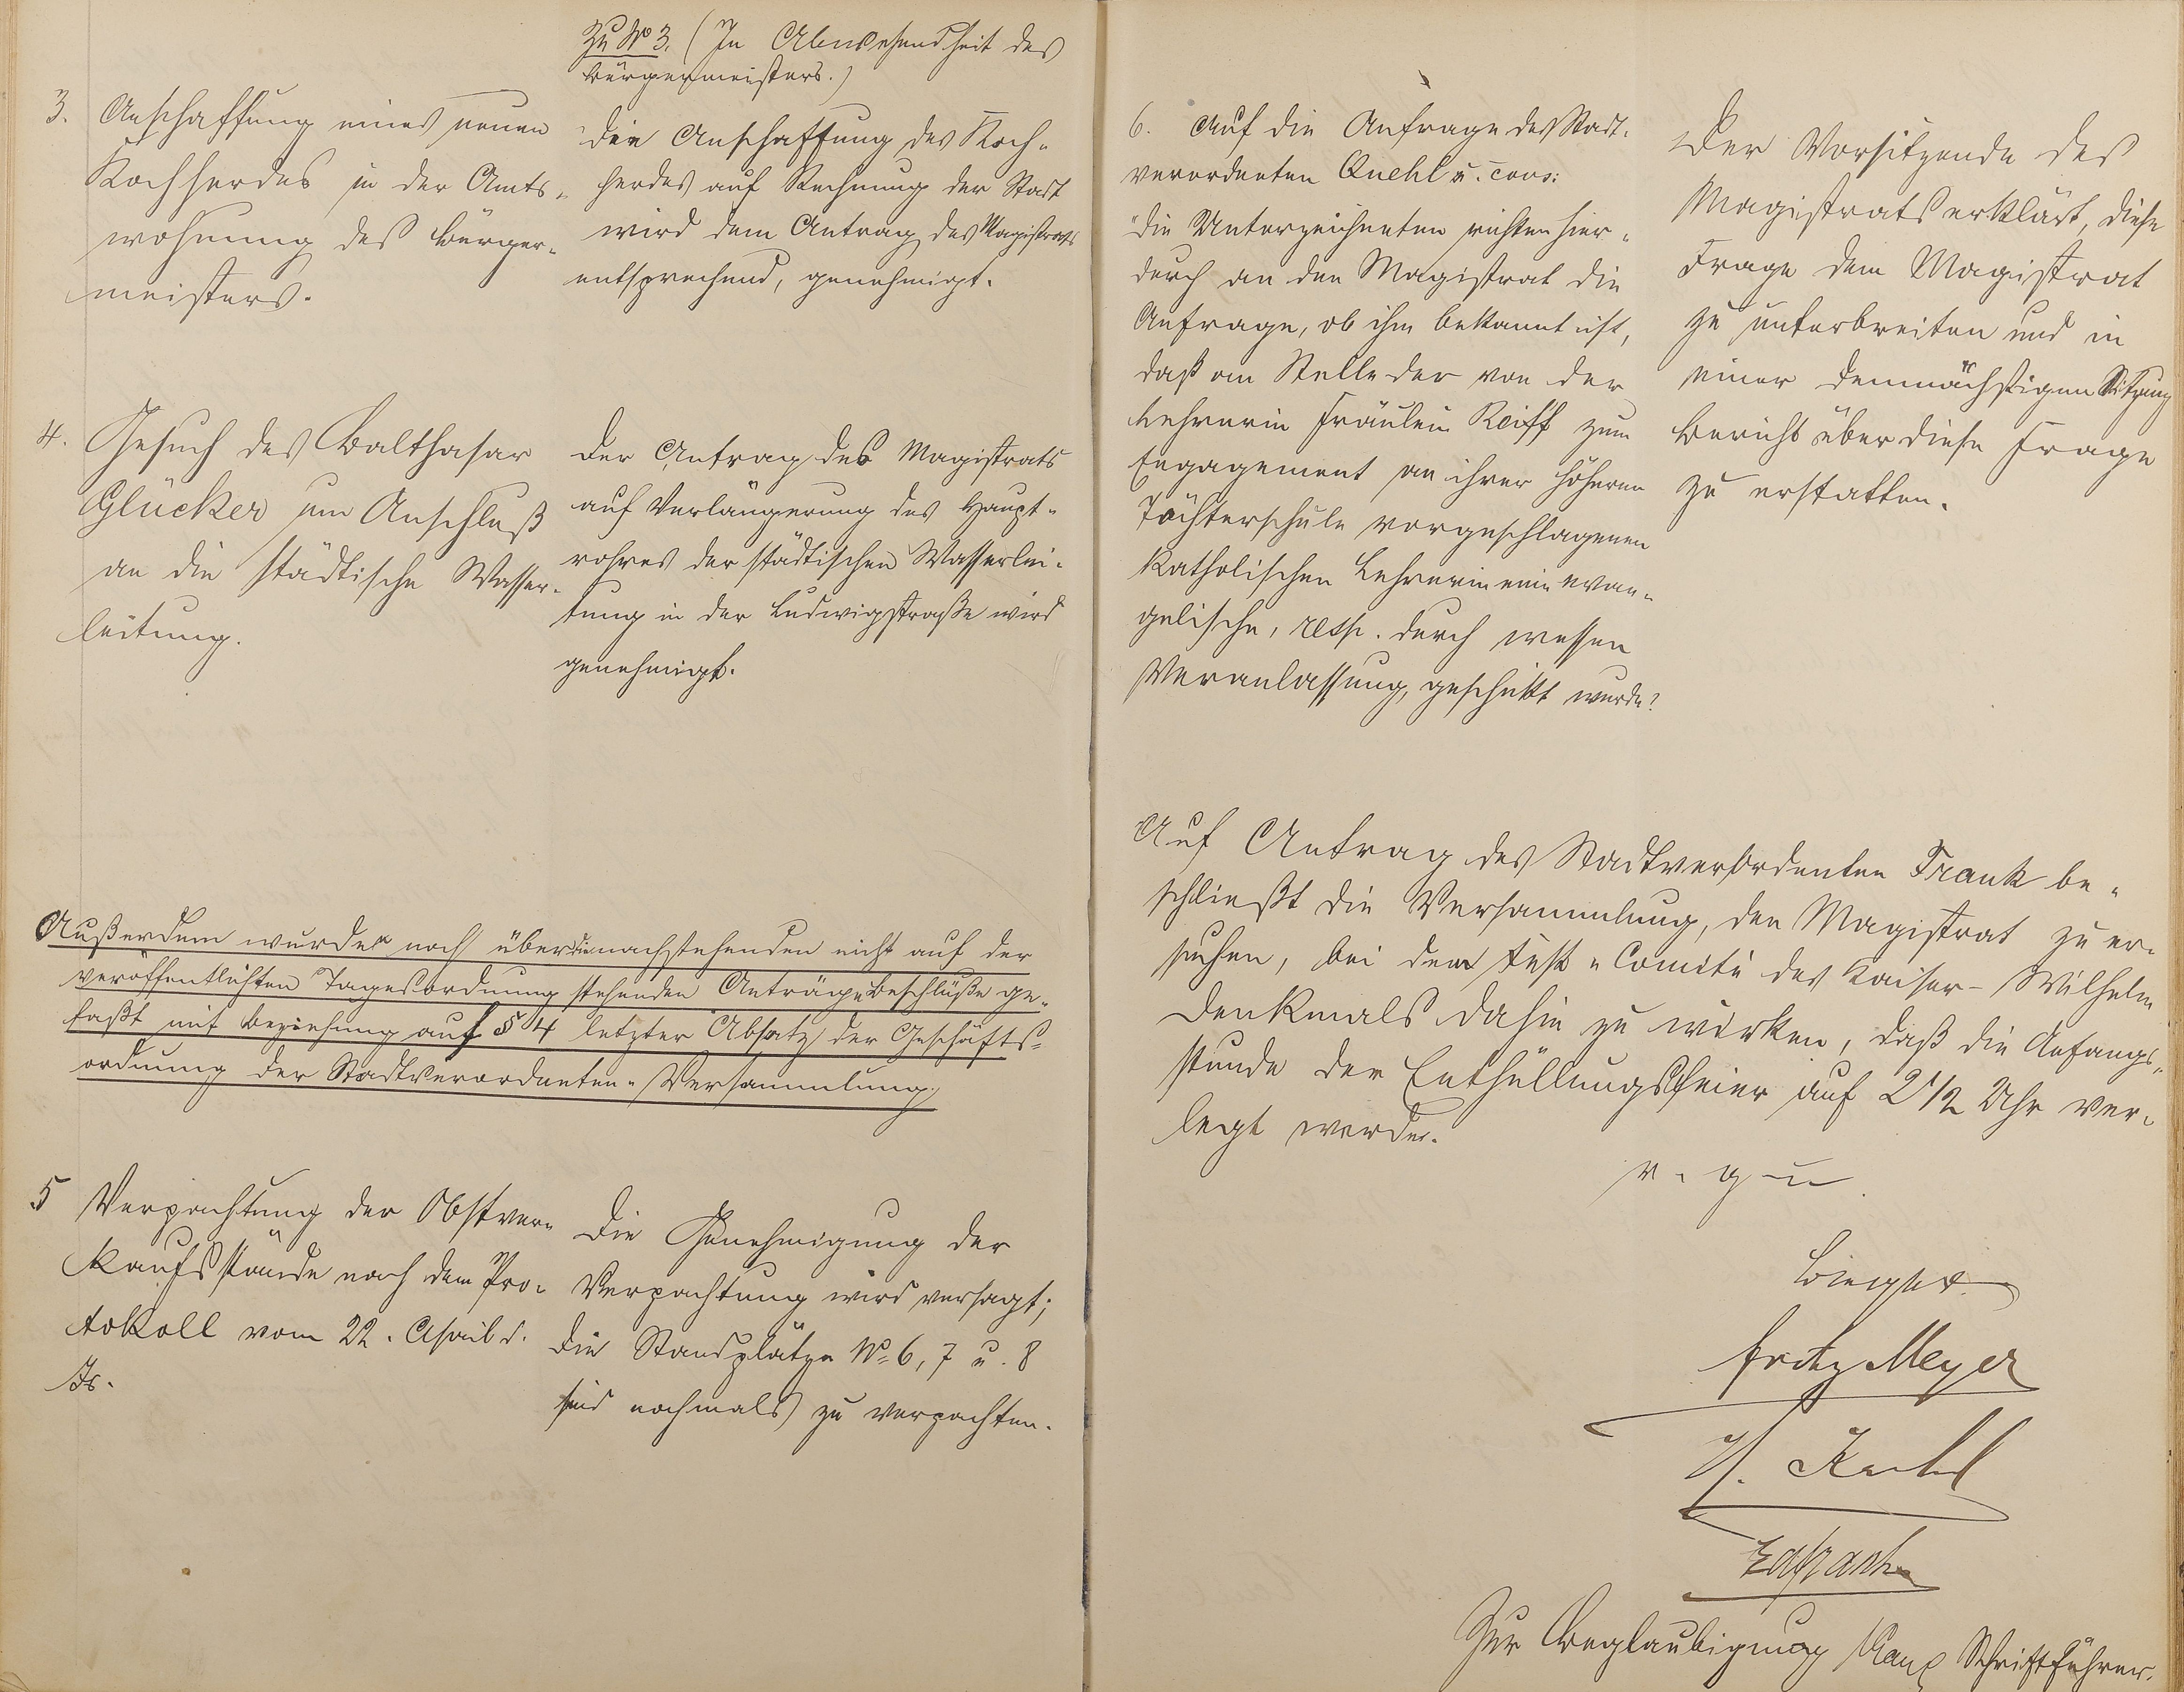 3. Anschaffung eines neuen
Kochherdes in der Amts-
wohnung des Bürger-
meisters.
Zu No 3. (In Abwesendheit des
Bürgermeisters.)
Die Anschaffung des Koch-
herdes auf Rechnung der Stadt
wird dem Antrag des Magistrats
entsprechend, genehmigt.
4. Gesuch des Balthasar
Glücker um Anschluß
an die städtische Wasser-
leitung.
Der Antrag des Magistrats
auf Verlängerung des Haupt-
rohres der städtischen Wasserlei-
tung in der Ludwigstraße wird
genehmigt.
Außerdem wurden noch über die nachstehenden nicht auf der
veröffentlichten Tagesordnung stehenden Anträge Beschlüße ge-
faßt mit Beziehung auf § 4 letzter Absatz der Geschäfts-
ordnung der Stadtverordneten-Versammlung.
5 Verpachtung der Obstver-
kaufsstände nach dem Pro-
tokoll vom 22. April d.
Js.
Die Genehmigung der
Verpachtung wird versagt;
die Standplätze No 6, 7 u. 8
sind nochmals zu verpachten.
6. Auf die Anfrage des Stadt-
verordneten Quehl u. cons:
"Die Unterzeichneten richten hier-
durch an den Magistrat die
Anfrage, ob ihm bekannt ist,
daß an Stelle der von der
Lehrerin Fräulein Reiff zum
Engagement an ihrer höheren
Töchterschule vorgeschlagenen
katholischen Lehrerin eine evan-
gelische, resp. durch wessen
Veranlassung, geschickt wurde?
Der Vorsitzende des
Magistrats erklärt, diese
Frage dem Magistrat
zu unterbreiten und in
einer demnächstigen Sitzung
Bericht über diese Frage
zu erstatten.
Auf Antrag des Stadtverordneten Frank be-
schließt die Versammlung, den Magistrat zu er-
suchen, bei dem Fest-Comité des Kaiser-Wilhelm
Denkmals dahin zu wirken, daß die Anfangs-
stunde der Enthüllungsfeier auf 2 1/2 Uhr ver-
legt werde.
v. g. u.
Fritz Meyer
Zur Beglaubigung Schriftführer.